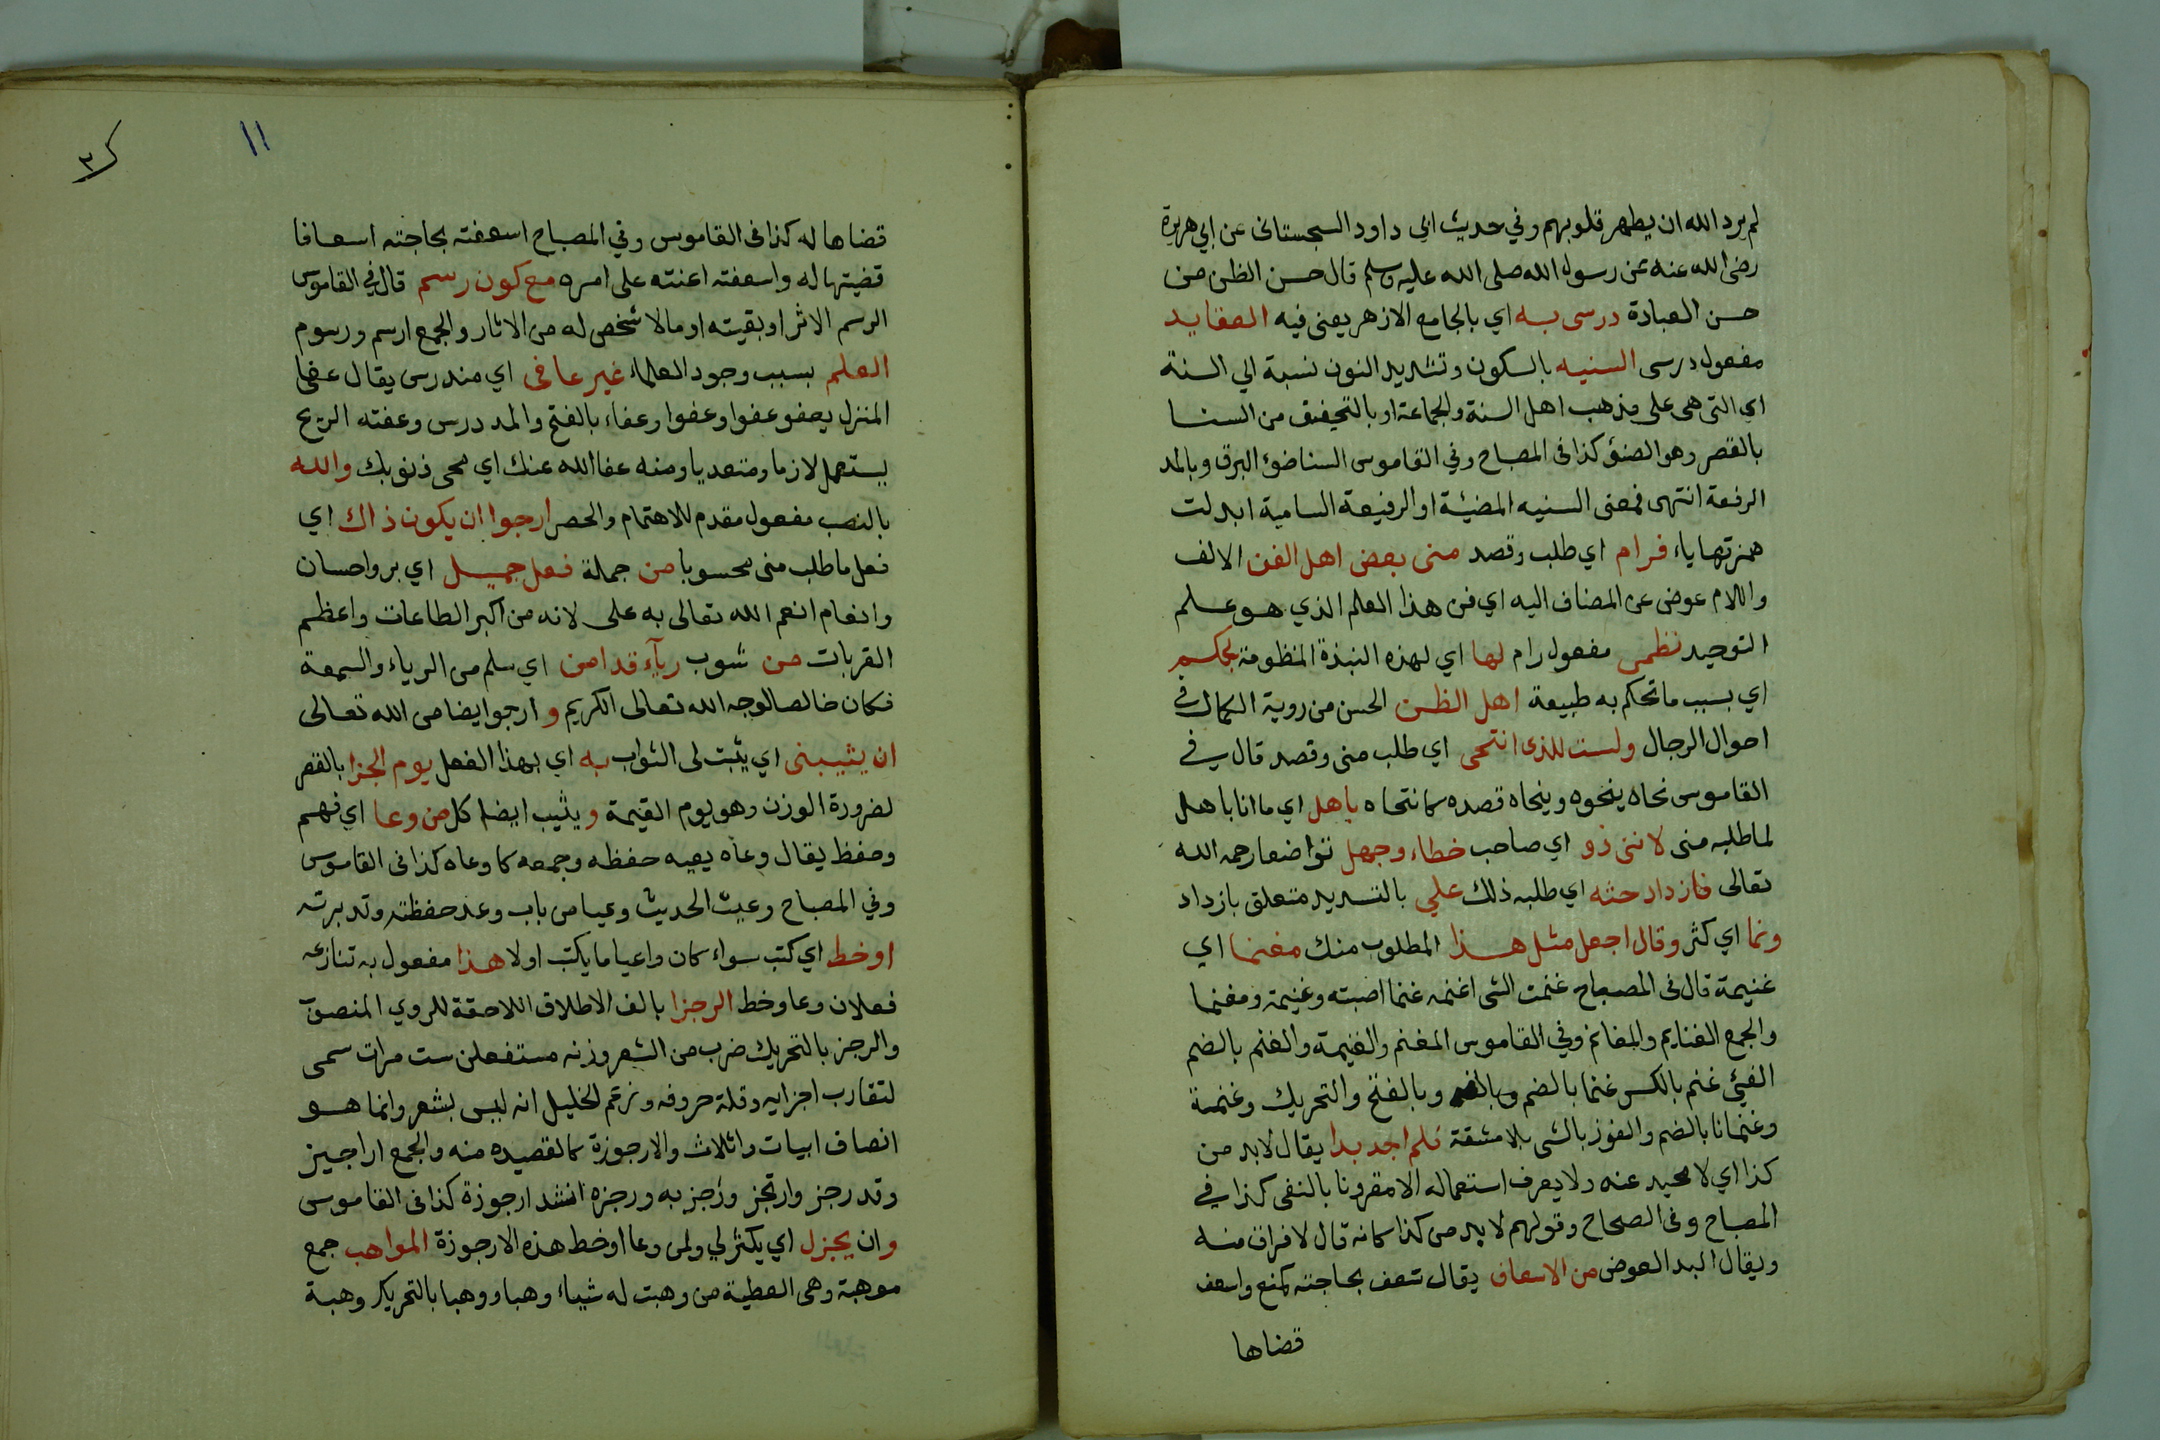 لم يرد الله ان يطهر قلوبهم وفي حديث ابي داود السجستانى عن ابي هريرة
رضى الله عنه عن رسول الله صلى الله عليه وسلم قال حسن الظن من
حسن العبادة درسى به اي بالجامع الازهر يعنى فيه العقايد
مفعول درسى السنيه بالسكون وتشديد النون نسبة الي السنة
اي التى هى على مذهب اهل السنة والجماعة او بالتخفيف من السنا
بالقصر وهو الضؤ كذا فى المصباح وفي القاموس السنا ضؤ البرق وبالمد
الرفعة انتهى فمعنى السنيه المضيئة او الرفيعة السامية ابدلت
همزتها ياء فرام اي طلب وقصد منى بعض اهل الفن الالف
واللام عوض عن المضاف اليه اي فن هذا العلم الذي هو علم
التوحيد نظمى مفعول رام لها اي لهذه النبذة المنظومة بحكم
اي بسبب ما تحكم به طبيعة اهل الظن الحسن من روية الكمال في
احوال الرجال ولست للذى انتحى اي طلب منى وقصد قال في
القاموس نحاه ينحوه وينحاه قصده كانتحاه باهل اي ما انا باهل
لما طلبه منى لاننى ذو اي صاحب خطاء وجهل تواضعا رحمه الله
تعالى فازداد حثه اي طلبه ذلك علي بالتسديد متعلق بازداد
ونما اي كثر وقال اجعل مثل هذا المطلوب منك مغنما اي
غنيمة قال فى المصباح غنمت الشى اغنمه غنما اصبته وغنيمة ومغنما
والجمع الغنايم والمغانم وفي القاموس المغنم والغنيمة والغنم بالضم
الفيئ غنم بالكسر غنما بالضم وبالفتح وبالفتح والتحريك وغنيمة
وغنمانا بالضم والفوز بالشى بلا مشقة فلم اجد بدا يقال لابد من
كذا اي لا محيد عنه ولا يعرف استعماله الا مقرونا بالنفى كذا في
المصباح وفى الصحاح وقولهم لابد من كذا كانه قال لا فراق منه
ويقال البد العوض من الاسعاف يقال سعف بحاجته كمنع واسعف
قضاها
١١
قضاها له كذا فى القاموس وفي المصباح اسعفته بحاجته اسعافا
قضيتها له واسعفته اعنته على امره مع كون رسم قال في القاموس
الرسم الاثر او بقيته او ما لا شخص له من الاثار والجمع ارسم ورسوم
العلم بسبب وجود العلماء غير عافى اي مندرس يقال عفا
المنزل يعفو عفوا وعفوا وعفاء بالفتح والمد درس وعفته الريح
يستعمل لازما ومتعديا ومنه عفا الله عنك اي محى ذنوبك والله
بالنصب مفعول مقدم للاهتمام والحصر ارجوا ان يكون ذاك اي
فعل ما طلب منى محسوبا من جملة فعل جميل اي بر واحسان
وانعام انعم الله تعالى به على لانه من اكبر الطاعات واعظم
القربات من شوب ريآء قد امن اي سلم من الرياء والسمعة
فكان خالصا لوجه الله تعالى الكريم و ارجوا ايضا من الله تعالى
ان يثيبنى اي يثبت لى الثواب به اي بهذا الفعل يوم الجزا بالقصر
لضرورة الوزن وهو يوم القيمة و يثيب ايضا كل من وعا اي فهم
وحفظ يقال وعاه يعيه حفظه وجمعه كاوعاه كذا فى القاموس
وفي المصباح وعيت الحديث وعيا من باب وعد حفظته وتدبرته
او خط اي كتب سواء كان واعيا ما يكتب اولا هذا مفعول به تنازعه
فعلان وعا وخط الرجزا بالف الاطلاق اللاحقة للروي المنصوب
والرجز بالتحريك ضرب من الشعر وزنه مستفعلن ست مرات سمى
لتقارب اجزايه وقلة حروفه وزعم الخليل انه ليس بشعر وانما هو
انصاف ابيات واثلاث والارجوزة كالقصيده منه والجمع اراجيز
وقد رجز وارتجز ورجز به ورجزه انشد ارجوزة كذا فى القاموس
وان يجزل اي يكثر لي ولمن وعا او خط هذه الارجوزة المواهب جمع
موهبة وهى العطية من وهبت له شيباء وهبا ووهبا بالتحريك وهبة